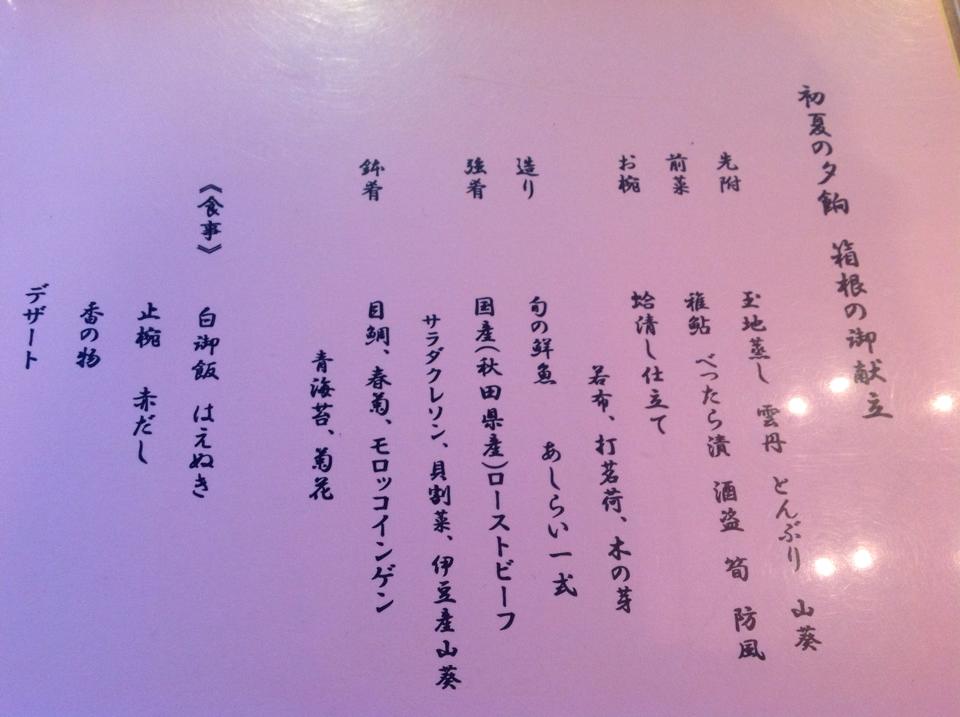 初夏の夕餉 箱根の御献立
先附 玉地蒸し 雲丹 とんぶり 山葵
前菜 稚鮎 べったら漬 酒盗 筍 防風
お椀 蛤清し仕立て
若布、打茗荷、木の芽
造り 旬の鮮魚 あしらい一式
強肴 国産(秋田県産)ローストビーフ
サラダクレソン、貝割菜、伊豆産山葵
鉢肴 目鯛、春菊、モロッコインゲン
青海苔、菊花
《食事》 白御飯 はえぬき
止椀 赤だし
香の物
デザート